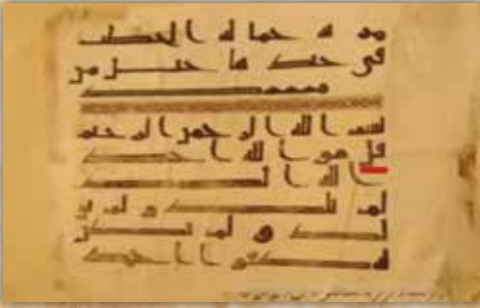 مر ته حما له ا لحطب
فى جيد ها حبل من
مسد
بسم ا لله ا لر حمن ا لر حيم
قل هو ا لله ا حد
ا لله ا لصمد
لم يلد و لم يو
لد و لم يكن
له كفو ا ا حد